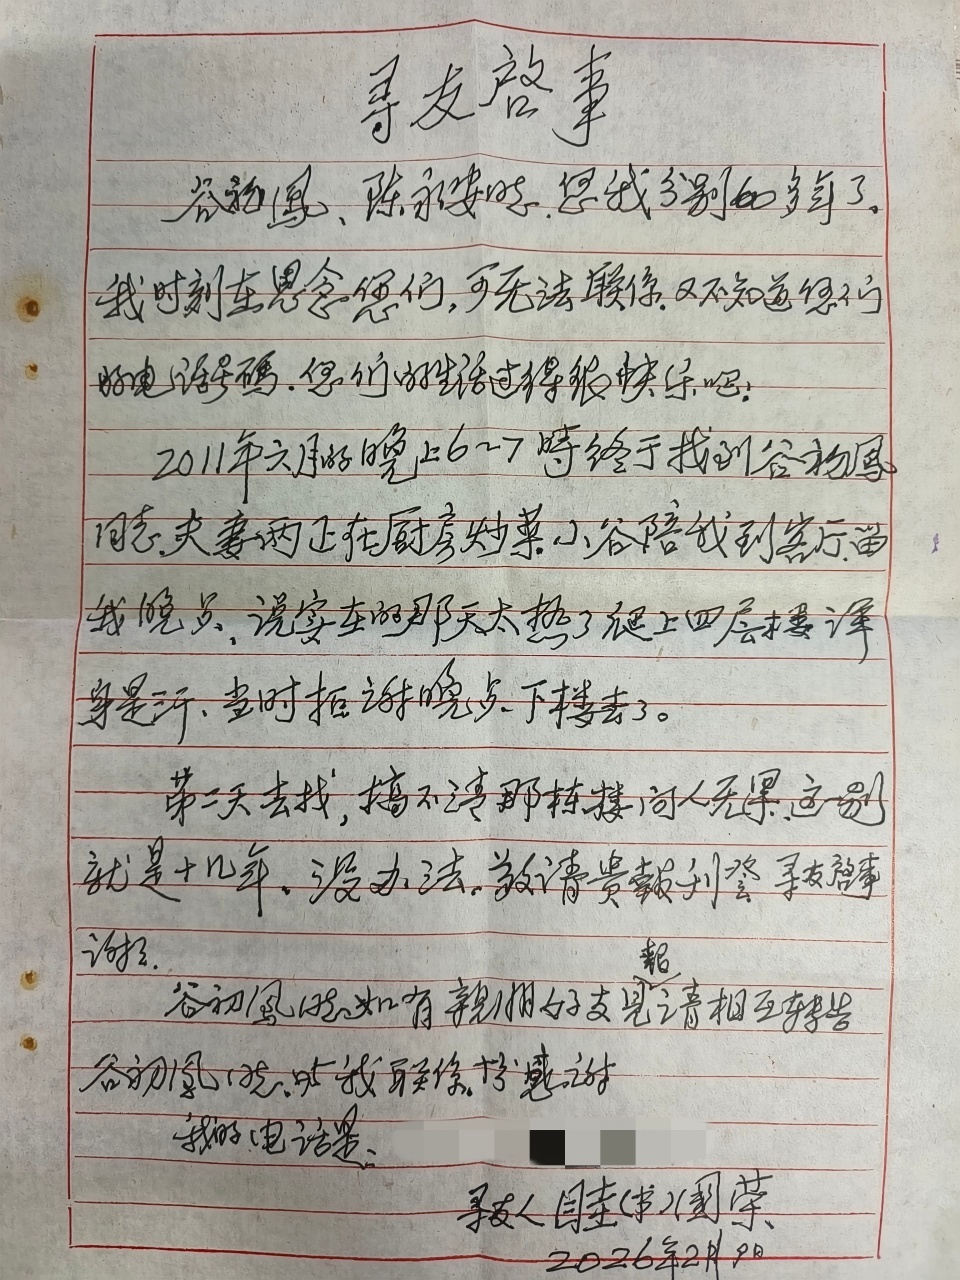 寻友启事
谷初凤、陈永安同志.您我分别60多年了。
我时刻在思念您们,可无法联係.又不知道您们
的电话号碼.您们的生活过得很快乐吧!
2011年六月的晚上6~7時终于找到谷初凤
同志.夫妻两正在厨房炒菜.小谷陪我到客厅.留
我晚点,说实在的那天太热了爬上四层楼浑
身是汗、当时拒谢晚点.下楼去了。
第二天去找,搞不清那栋楼问人无果.这一别
就是十几年。没办法.敬请贵報刊登寻友启事
谢!
谷初凤同志如有親朋好友見報请相互转告
谷初凤同志.与我联係.十分感谢
我的电话是:
寻友人闫圭(书)国荣
2026年2月9日